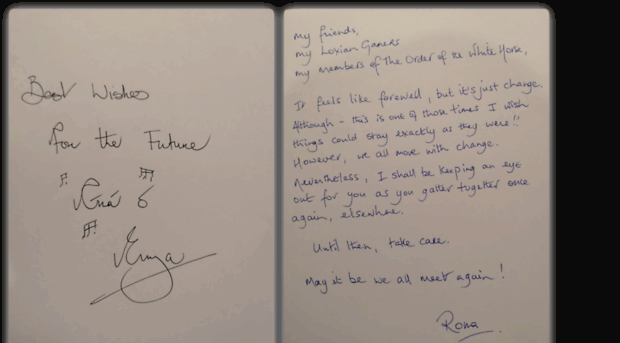 Best Wishes
For the Future
Enya
My friends,
My Loxian Gamers
My members of The Order of the White Horse,
It feels like farewell, but it's just change.
Although - this is one of those times I wish
things could stay exactly as they were!!
However, we all move with change.
Nevertheless, I shall be keeping an eye
out for you as you gather together once
again, elsewhere.
Until then, take care.
May it be we all meet again!
Roma